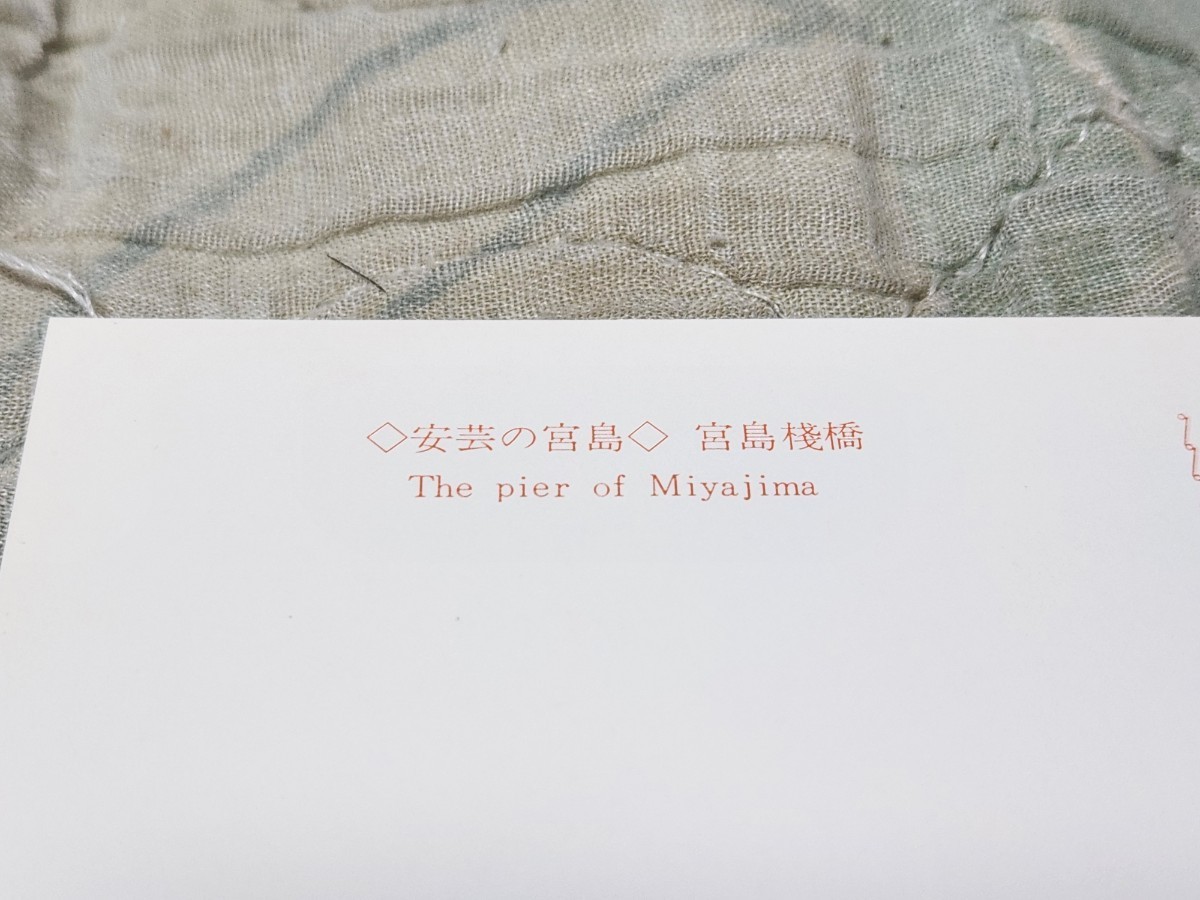 ◇安芸の宮島◇ 宮島棧橋
The pier of Miyajima